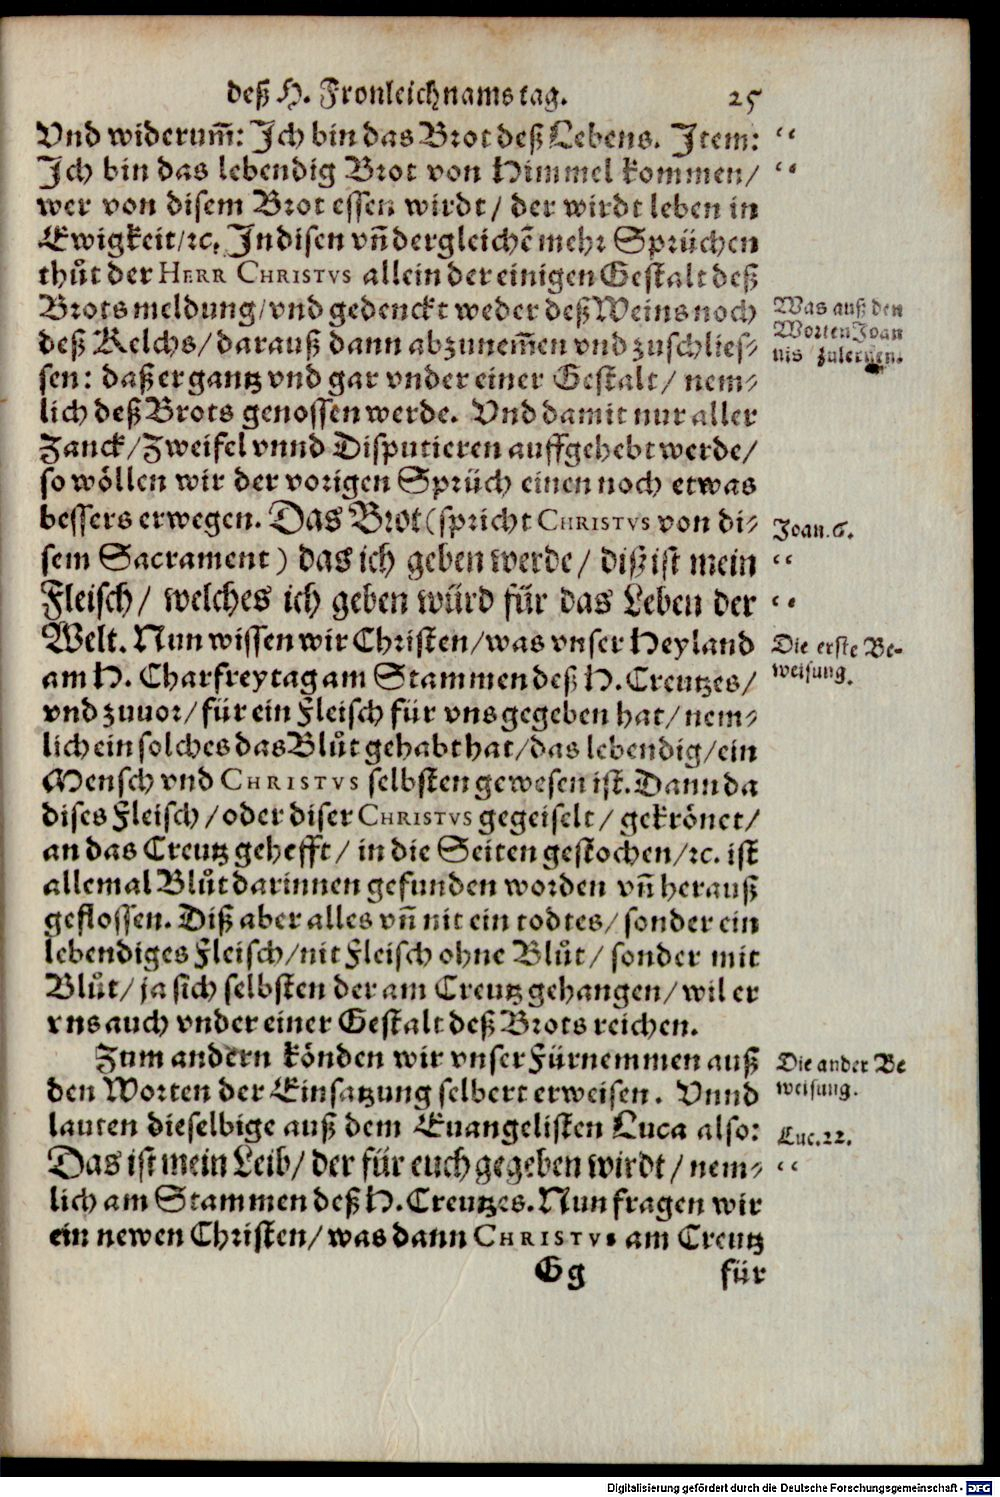 deß H. Fronleichnams tag. 25
Vnd widerum̃: Ich bin das Brot deß Lebens. Item: “
Ich bin das lebendig Brot von Himmel kommen/ “
wer von disem Brot essen wirdt/ der wirdt leben in
Ewigkeit/ꝛc. In disen vñ dergleichẽ mehr Sprüchen
thůt der HERR CHRISTVS allein der einigen Gestalt deß
Brots meldung/vnd gedenckt weder deß Weins noch
Was auß den
deß Kelchs/ darauß dann abzunem̃en vnd zuschlies-
Worten Joan
nis zulernen.
sen: daß er gantz vnd gar vnder einer Gestalt/ nem-
lich deß Brots genossen werde. Vnd damit nur aller
Zanck/Zweifel vnnd Disputieren auffgehebt werde/
so wöllen wir der vorigen Sprüch einen noch etwas
bessers erwegen. Das Brot (spricht CHRISTVS von di-
Joan.6.
sem Sacrament) das ich geben werde/ diß ist mein “
Fleisch/ welches ich geben würd für das Leben der “
Welt. Nun wissen wir Christen/was vnser Heyland
Die erste Be-
weisung.
am H. Charfreytag am Stammen deß H. Creutzes/
vnd zuuor/ für ein Fleisch für vns gegeben hat/ nem-
lich ein solches das Blůt gehabt hat/das lebendig/ein
Mensch vnd CHRISTVS selbsten gewesen ist. Dann da
dises Fleisch/oder diser CHRISTVS gegeiselt/ gekrönet/
an das Creutz gehefft/ in die Seiten gestochen/ꝛc. ist
allemal Blůt darinnen gefunden worden vñ herauß
geflossen. Diß aber alles vñ nit ein todtes/ sonder ein
lebendiges Fleisch/nit Fleisch ohne Blůt/ sonder mit
Blůt/ ja sich selbsten der am Creutz gehangen/ wil er
vns auch vnder einer Gestalt deß Brots reichen.
Zum andern könden wir vnser Fürnemmen auß
Die ander Be
weisung.
den Worten der Einsatzung selbert erweisen. Vnnd
lauten dieselbige auß dem Euangelisten Luca also:
Luc.22.
Das ist mein Leib/ der für euch gegeben wirdt/ nem- “
lich am Stammen deß H. Creutzes. Nun fragen wir
ein newen Christen/ was dann CHRISTVS am Creutz
Gg für
Digitalisierung gefördert durch die Deutsche Forschungsgemeinschaft - DFG